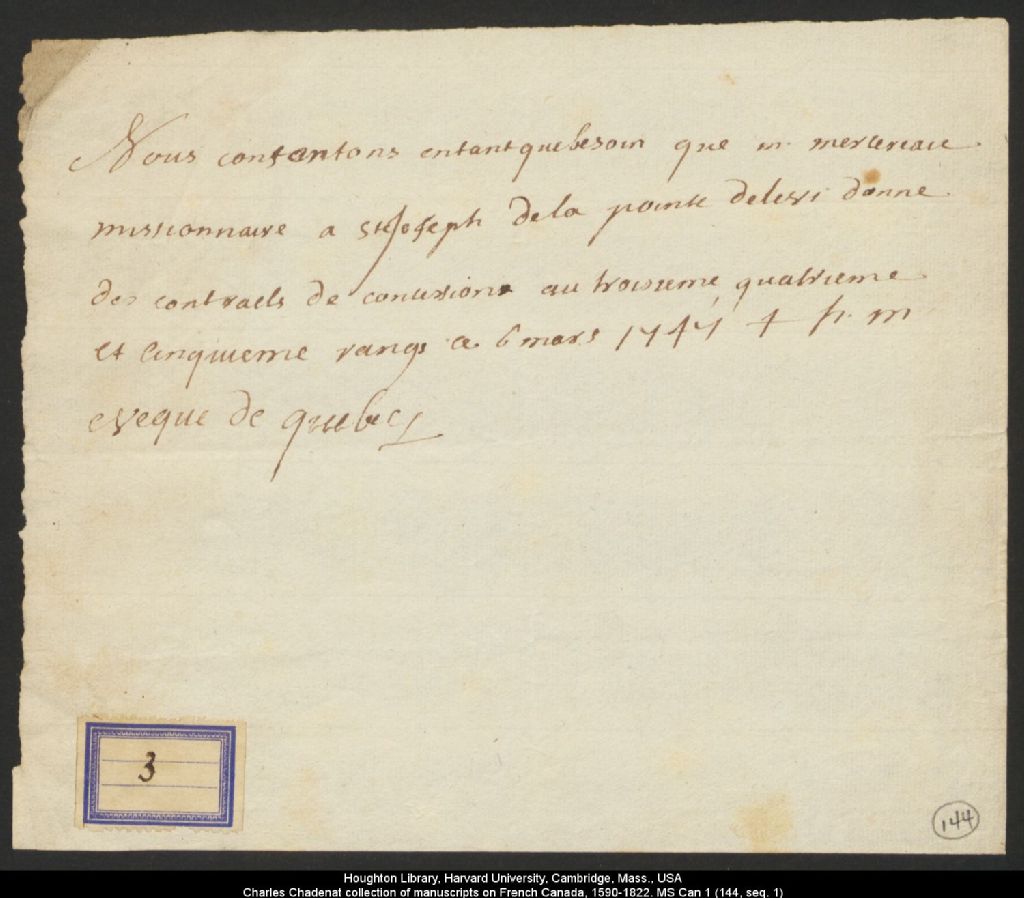 Nous consentons entant que besoin que mr mercereau
missionnaire a St Joseph de la pointe de levi donne
des contracts de concession au troisieme, quatrieme
et cinquieme rangs ce 6 mars 1747 + h. m
eveque de quebec
3
144
Houghton Library, Harvard University, Cambridge, Mass., USA
Charles Chadenat collection of manuscripts on French Canada, 1590-1822. MS Can 1 (144, seq. 1)